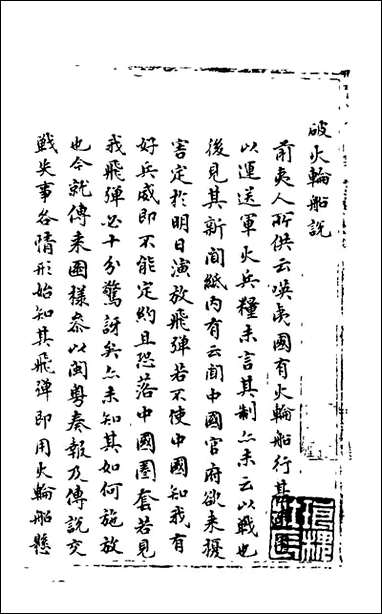 破火輪船說
前夷人所供云嘆夷國有火輪船行其
以運送軍火兵糧未言其制亦未云以戰也
後見其新聞紙內有云聞中國官府欲來擾
害定於明日演放飛彈若不使中國知我有
好兵威即不能定約且恐落中國圈套若見
我飛彈必十分驚訝矣亦未知其如何施放
也今就傳來圖樣參以閩粵奏報及傳說交
戰失事各情形始知其飛彈即用火輪船懸